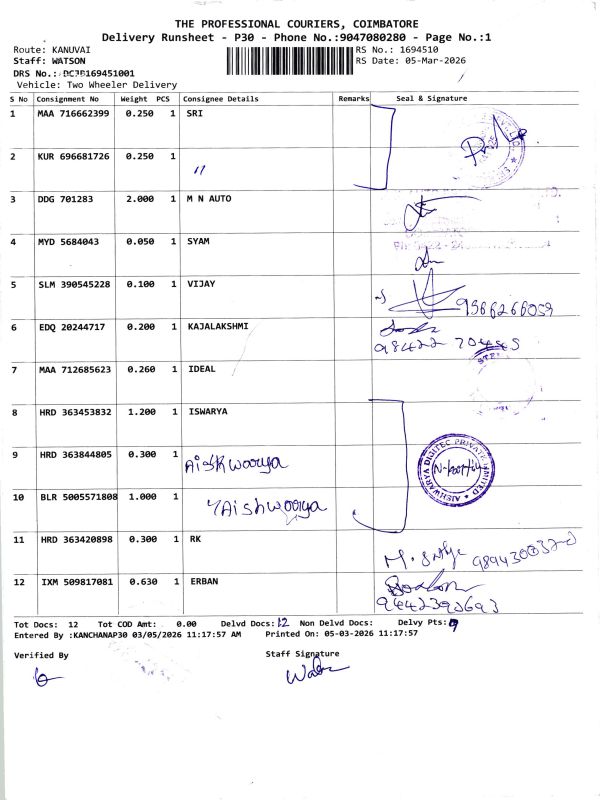 THE PROFESSIONAL COURIERS, COIMBATORE
Delivery Runsheet - P30 - Phone No.:9047080280 - Page No.:1
Route: KANUVAI RS No.: 1694510
Staff: WATSON RS Date: 05-Mar-2026
DRS No.: DCJB169451001
Vehicle: Two Wheeler Delivery
S No Consignment No Weight PCS Consignee Details Remarks Seal & Signature
1 MAA 716662399 0.250 1 SRI
2 KUR 696681726 0.250 1 "
3 DDG 701283 2.000 1 M N AUTO
4 MYD 5684043 0.050 1 SYAM
5 SLM 390545228 0.100 1 VIJAY 9566266059
6 EDQ 20244717 0.200 1 KAJALAKSHMI
98422
7 MAA 712685623 0.260 1 IDEAL
8 HRD 363453832 1.200 1 ISWARYA
9 HRD 363844805 0.300 1 AishKwoorya
AISHWARYA DIGITEC PRIVATE LIMITED
10 BLR 5005571808 1.000 1 Aishwoorya
11 HRD 363420898 0.300 1 RK
12 IXM 509817081 0.630 1 ERBAN
9442390693
Tot Docs: 12 Tot COD Amt: 0.00 Delvd Docs: 12 Non Delvd Docs: Delvy Pts: 9
Entered By :KANCHANAP30 03/05/2026 11:17:57 AM Printed On: 05-03-2026 11:17:57
Verified By Staff Signature